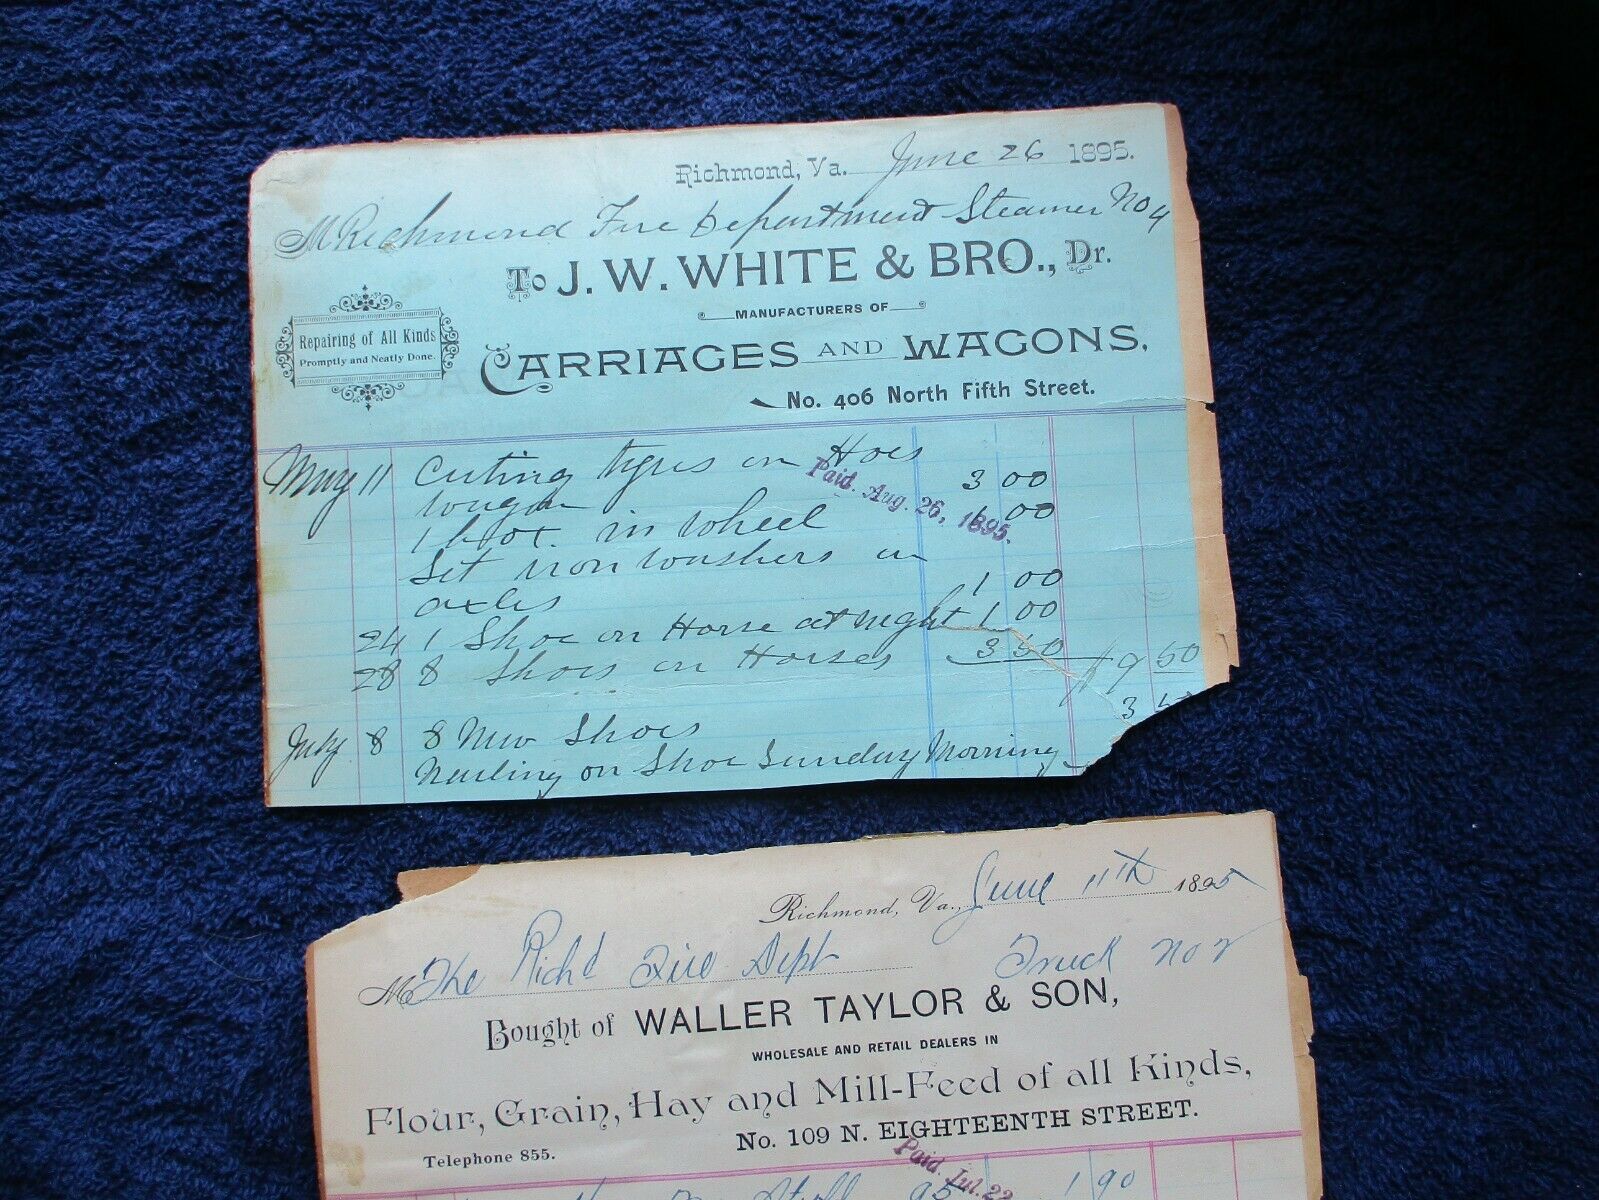 Richmond, Va. June 26 1895.
M Richmond Fire Department Steamer No 4
To J. W. WHITE & BRO., Dr.
MANUFACTURERS OF
Repairing of All Kinds
Promptly and Neatly Done.
CARRIAGES AND WAGONS,
No. 406 North Fifth Street.
May 11 Cuting tyres on Hoes
wagon 3 00
1 bolt in wheel 1 00
Set iron washers on
axles 1 00
24 1 Shoe on Horse at night 1 00
28 8 Shoes on Horses 3 50 $9 50
Paid. Aug. 26, 1895.
July 8 8 New Shoes 3 50
Nailing on Shoe Sunday Morning
Richmond, Va., June 11th 1895
M The Rich'd Fire Dept Truck No 2
Bought of WALLER TAYLOR & SON,
WHOLESALE AND RETAIL DEALERS IN
Flour, Grain, Hay and Mill-Feed of all Kinds,
No. 109 N. EIGHTEENTH STREET.
Telephone 855.
Paid. Jul. 22
95 1 90